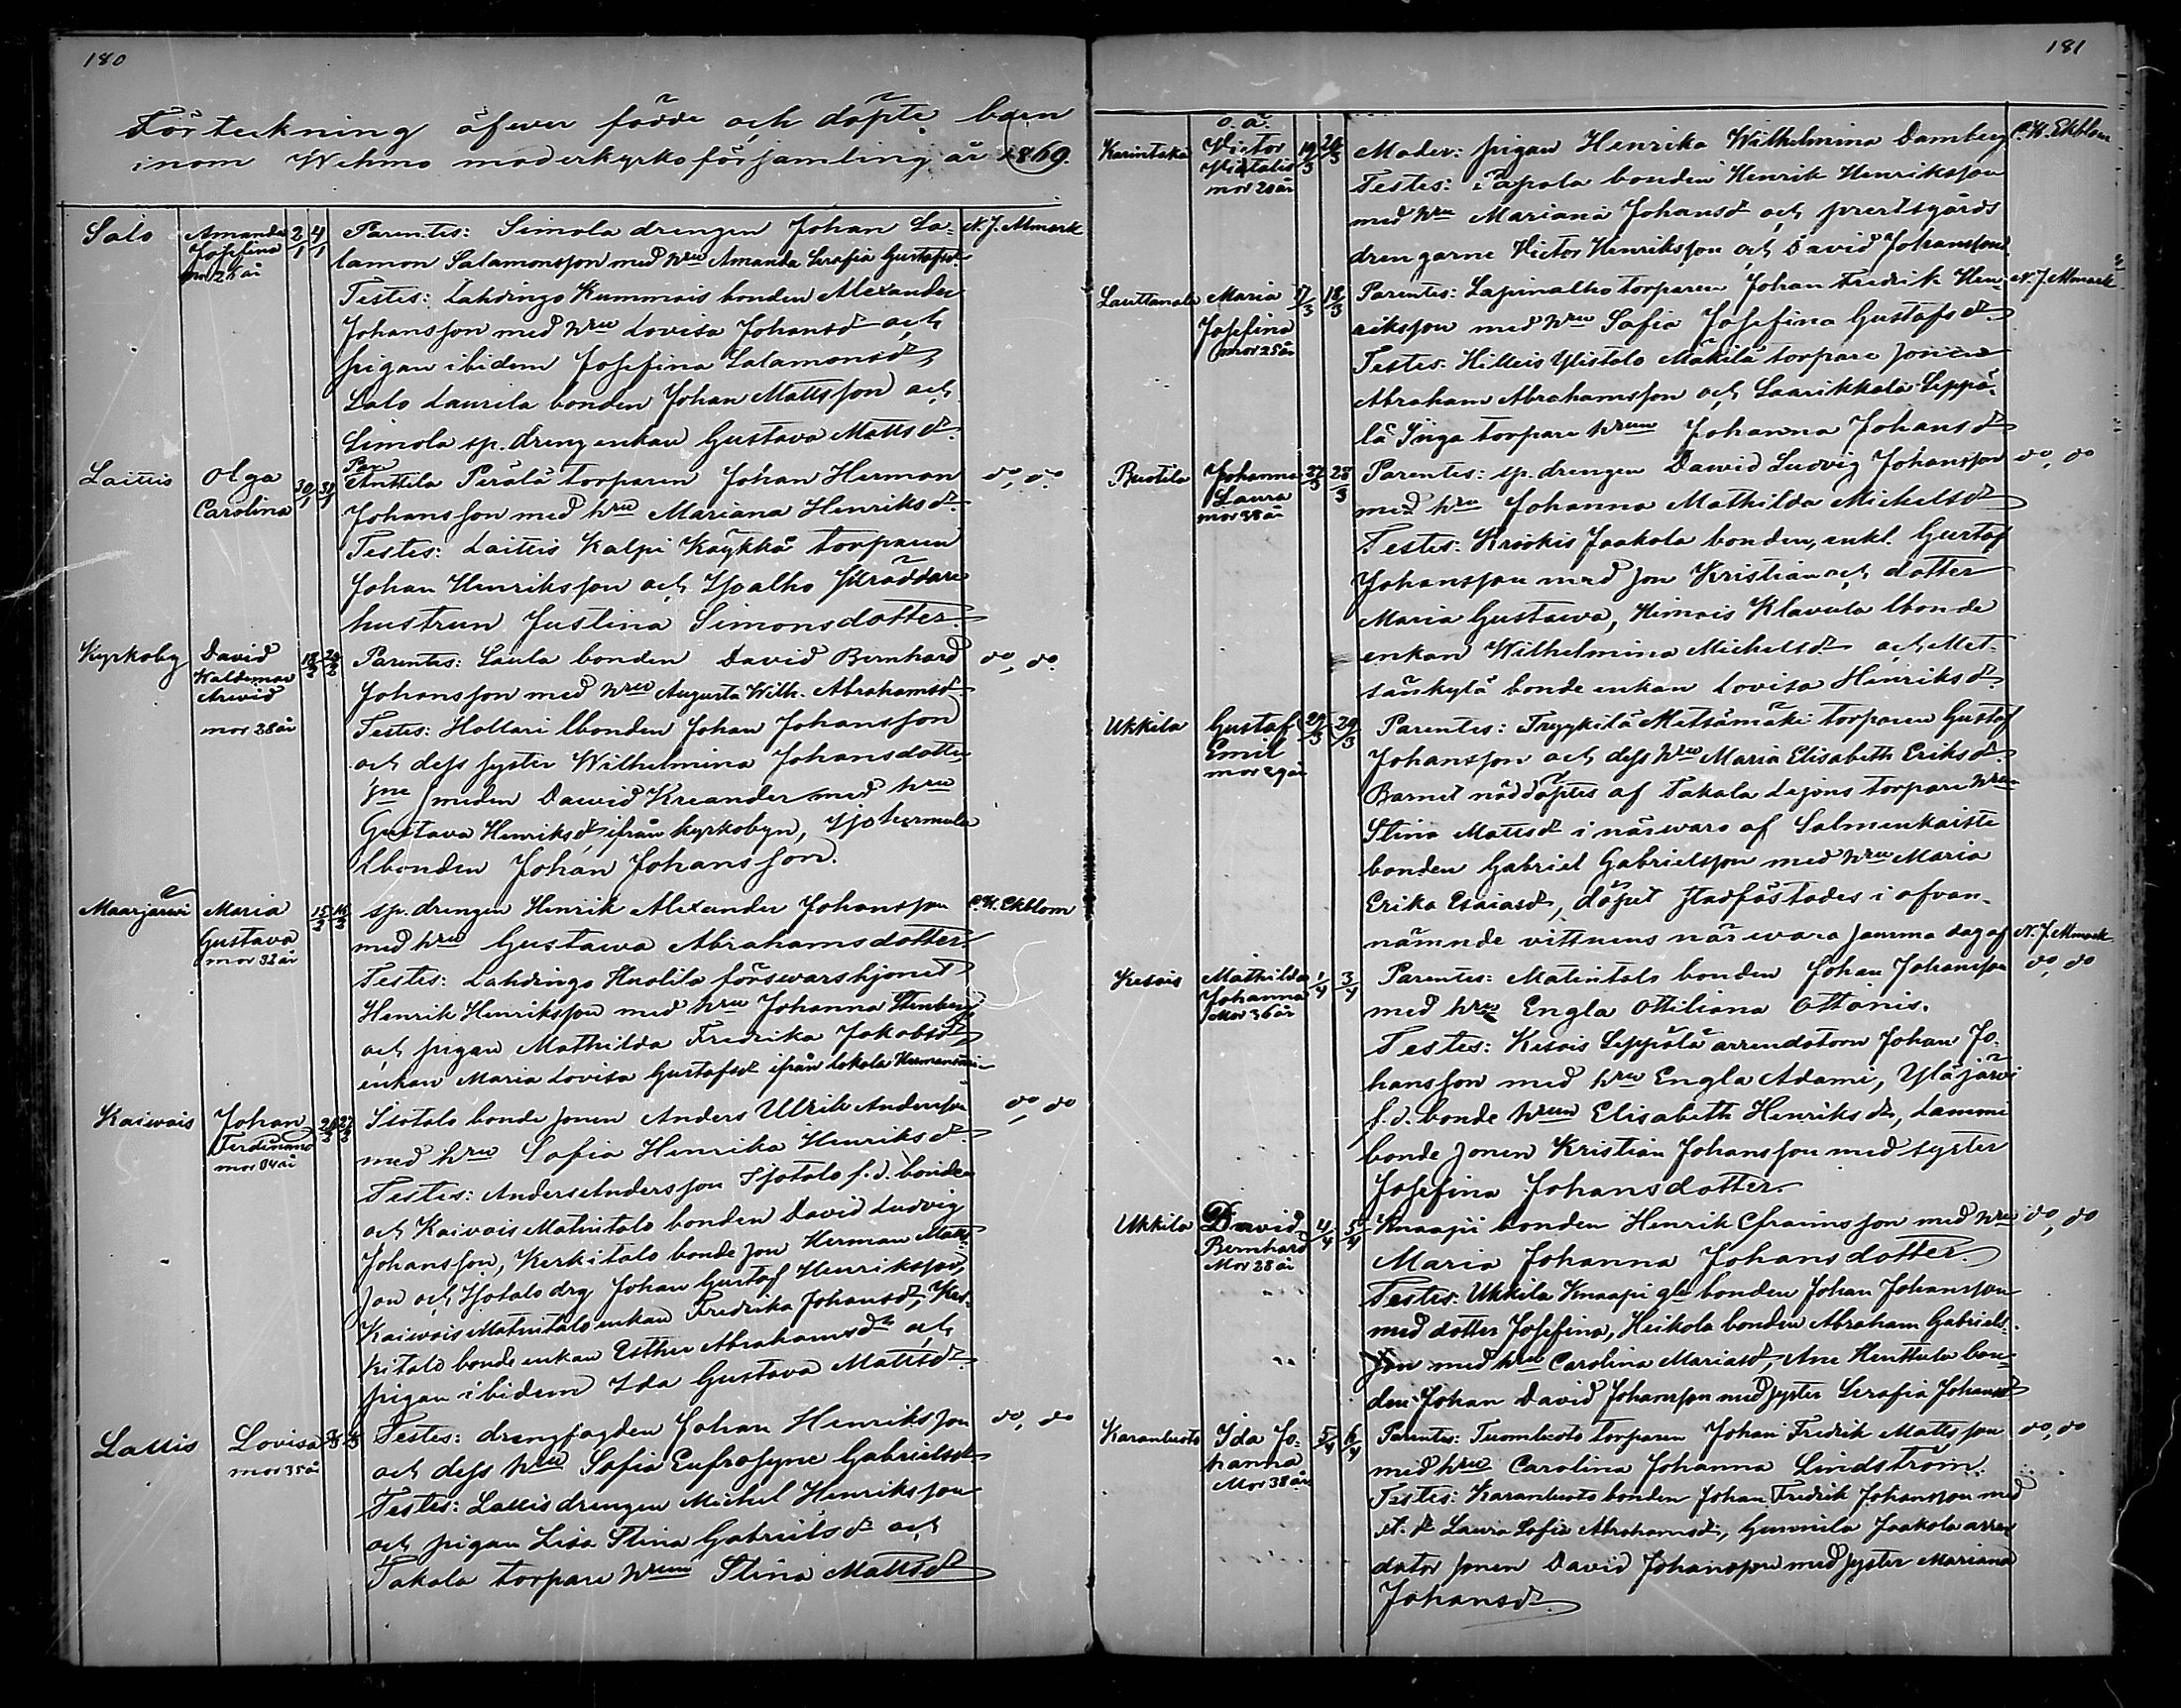 180
Förteckning öfwer födde och döpte barn
inom Wehmo moderkyrkoförsamling år 1869.
Salo
Amanda
Josefina
mor 25 år
2/1 4/1
Parentes: Simola drengen Johan Sa=
lamon Salamonsson med hru Amanda Serafia Gustafsdr
Testes: Lahdingo Kummois bonden Alexander
Johansson med hru Lovisa Johansdr och
pigan ibidem Josefina Salamonsdr,
Salo Laurila bonden Johan Mattsson och
Simola sp. dreng enkan Gustava Mattsdr.
N. J. Almark
Laitis
Olga
Carolina
30/1 31/1
Par
Anttila Perälä torparen Johan Herman
Johansson med hru Mariana Henriksdr.
Testes: Laitis Kalpi Käykkä torparen
Johan Henriksson och Isoalho skräddare
hustrun Justina Simonsdotter.
do, do
Kyrkoby
David
Waldemar
Arvid
mor 28 år
18/2 20/2
Parentes: Laula bonden David Bernhard
Johansson med hru Augusta Wilh. Abrahamsdr
Testes: Hollari bonden Johan Johansson
och dess syster Wilhelmina Johansdotter,
smeden David Kreander med hru
Gustava Henriksdr, ifrån kyrkobyn,
bonden Johan Johansson.
do, do
Maarjärwi
Maria
Gustava
mor 32 år
15/2 16/2
sp. drengen Henrik Alexander Johansson
med hru Gustawa Abrahamsdotter
Testes: Lahdingo Huolila förswarshjonet
Henrik Henriksson med hru Johanna Stenberg
och pigan Mathilda Fredrika Jakobsdr
enkan Maria Lovisa Gustafsdr ifrån Lokala
C. W. Ekblom
Kaiwais
Johan
Ferdinand
26/2 27/2
Isotalo bonde sonen Anders Ulrik Andersson
med hru Sofia Henrika Henriksdr.
Testes: Anders Andersson Isotalo f.d. bonden
och Kaivais Matintalo bonden David Ludvig
Johansson, Kerkitalo bonde son Herman Matts=
son och Isotalo drg Johan Gustaf Henriksson,
Kaiwais Matintalo enkan Fredrika Johansdr, Ker=
kitalo bonde enkan Esther Abrahamsdr och
pigan ibidem Ida Gustava Mattsdr.
do, do
Lallis
Lovisa
mor 35 år
Testes: drengfogden Johan Henriksson
och dess hru Sofia Eufrosyne Gabrielsdr
Testes: Lallis drengen Michel Henriksson
och pigan Lisa Stina Gabrielsdr och
Takala torpare hrun Stina Mattsdr
do, do
181
Karintaka
o. ä.
Victor
Vitalis
mor 20 år
19/3 20/3
Moder: pigan Henrika Wilhelmina Damberg
Testes: Papola bonden Henrik Henriksson
med hru Mariana Johansdr och prestgårds
drengarne Victor Henriksson och David Johansson.
C. W. Ekblom
Lauttanala
Maria
Josefina
mor 25 år
17/3 18/3
Parentes: Lapinalho torparen Johan Fredrik Hen=
riksson med hru Sofia Josefina Gustafsdr.
Testes: Hilleis Ylistalo Mäkilä torpare sonen
Abraham Abrahamsson och Saarikkala Seppä=
lä Inga torpare hrun Johanna Johansdr
N. J. Almark
Puotila
Johanna
Laura
mor 38 år
27/3 28/3
Parentes: sp. drengen Dawid Ludvig Johansson
med hru Johanna Mathilda Michelsdr
Testes: Krookis Jaakola bonden, enkl. Gustaf
Johansson med son Kristian och dotter
Maria Gustawa, Himois Klavula bonde
enkan Wilhelmina Michelsdr och Met=
sänkylä bonde enkan Lovisa Hinriksdr.
do, do
Ukkila
Gustaf
Emil
mor 29 år
29/3 29/3
Parentes: Tryykilä Metsämäki torparen Gustaf
Johansson och dess hru Maria Elisabeth Eriksdr.
Barnet nöddöptes af Takala Lejons torpare hrun
Stina Mattsdr i närwaro af Salmenkaitte
bonden Gabriel Gabrielsson med hru Maria
Erika Esaiasdr, döpet stadfästades i ofwan-
nämnde vittnens närwaro samma dag af
N. J. Almark
Kesois
Mathilda
Johanna
Mor 36 år
1/4 3/4
Parentes: Matintalo bonden Johan Johansson
med hru Engla Ottiliana Ottonis.
Testes: Kesois Seppälä arrendatorn Johan Jo-
hansson med hru Engla Adami, Yläjärvi
f.d. bonde hrun Elisabeth Henriksdr, Lammi
bonde sonen Kristian Johansson med syster
Josefina Johansdotter.
do, do
Ukkila
David
Bernhard
Mor 28 år
4/4 5/4
Knaapi bonden Henrik Efraimsson med hru
Maria Johanna Johansdotter.
Testes: Ukkila Knaapi gle bonden Johan Johansson
med dotter Josefina, Heikola bonden Abraham Gabriels-
son med hru Carolina Mariasdr, Ane Henttula bon=
den Johan David Johansson med syster Serafia Johansdr
do, do
Karanluoto
Ida Jo-
hanna
Mor 38 år
5/4 6/4
Parentes: Tuomluoto torparen Johan Fredrik Mattsson
med hru Carolina Johanna Lindström.
Testes: Karanluoto bonden Johan Fredrik Johansson med
Laura Sofia Abrahamsdr, Gunnila Jaakola arren
dator sonen David Johansson med syster Mariana
Johansdr
do, do